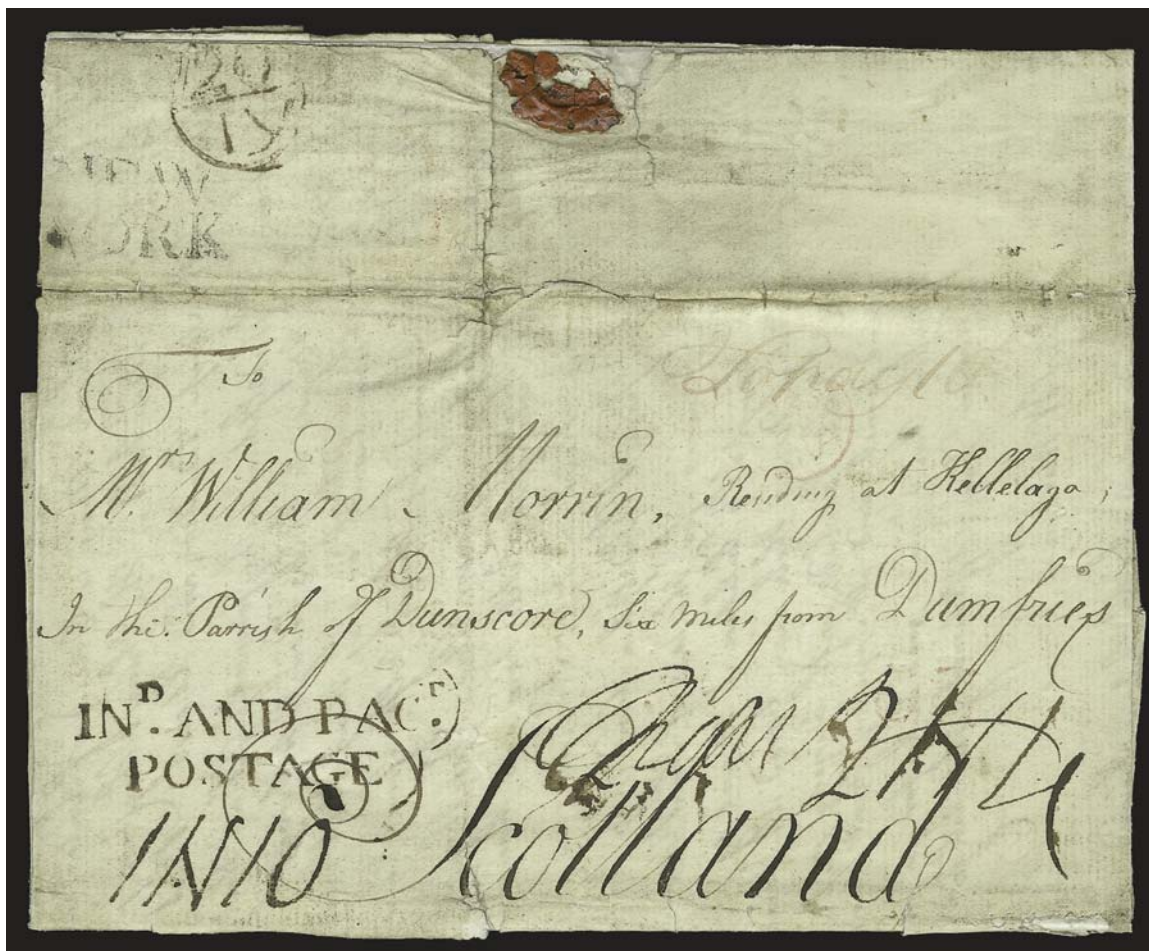 20
IY
NEW
YORK
To
Mr. William Morrin, Residing at Kellelago,
In the Parrish of Dunscore, Six miles from Dumfries
IND. AND PAC.
POSTAGE
1N10 Scotland